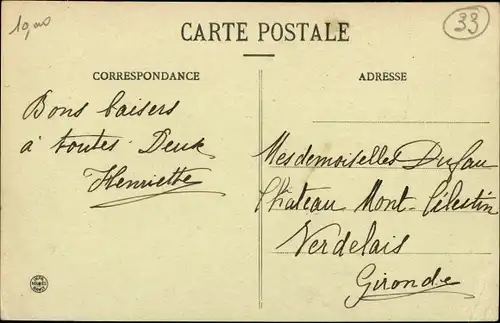 10,00
33
CARTE POSTALE
CORRESPONDANCE
ADRESSE
Bons baisers
à toutes Deux
Henriette
Mesdemoiselles Dufau
Château Mont-Célestin
Verdelais
Gironde